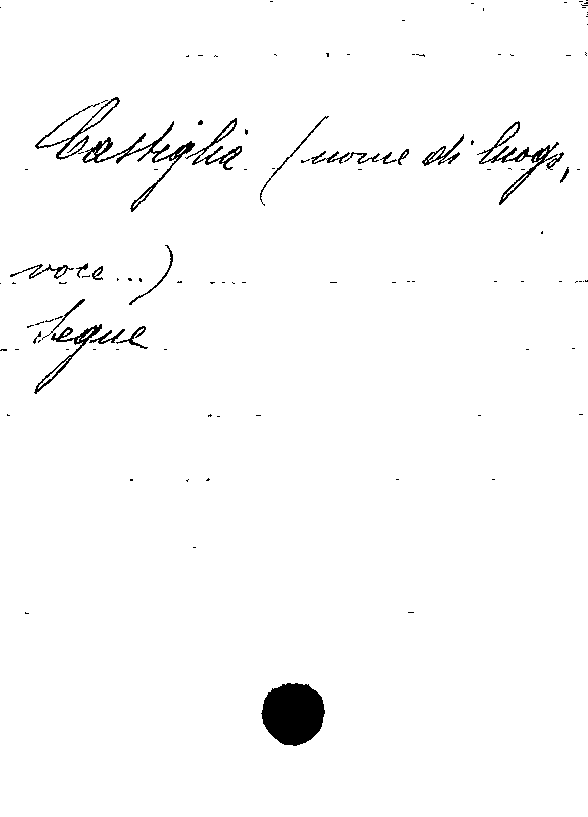 Castiglia (nome di luogo,
voce...)
Segue